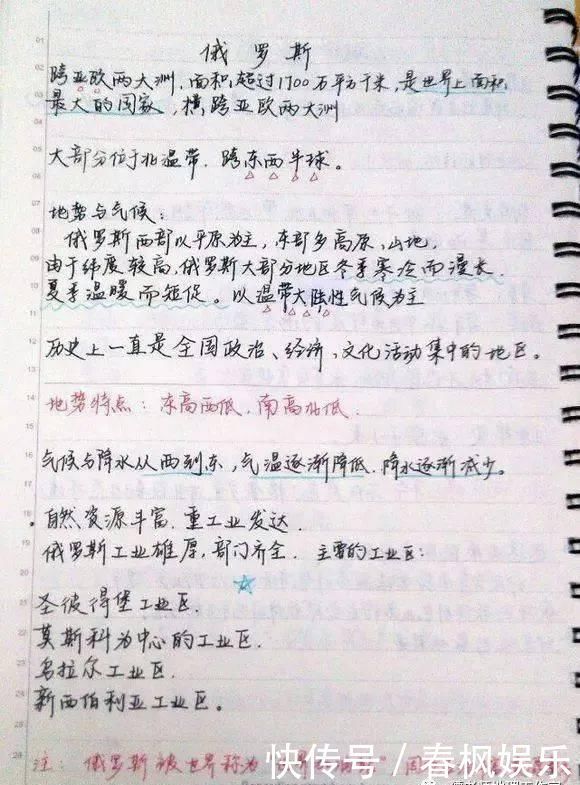 俄罗斯
跨亚欧两大洲,面积超过1700万平方千米,是世界上面积
最大的国家,横跨亚欧两大洲
大部分位于北温带.跨东西半球。
地势与气候:
俄罗斯西部以平原为主,东部多高原,山地.
由于纬度较高,俄罗斯大部分地区冬季寒冷而漫长.
夏季温暖而短促。以温带大陆性气候为主
历史上一直是全国政治、经济、文化活动集中的地区。
地势特点:东高西低.南高北低.
气候与降水从西到东,气温逐渐降低.降水逐渐减少。
自然资源丰富.重工业发达.
俄罗斯工业雄厚,部门齐全.主要的工业区:
圣彼得堡工业区
莫斯科为中心的工业区.
乌拉尔工业区.
新西伯利亚工业区。
注:俄罗斯被世界称为
快传号/春枫娱乐